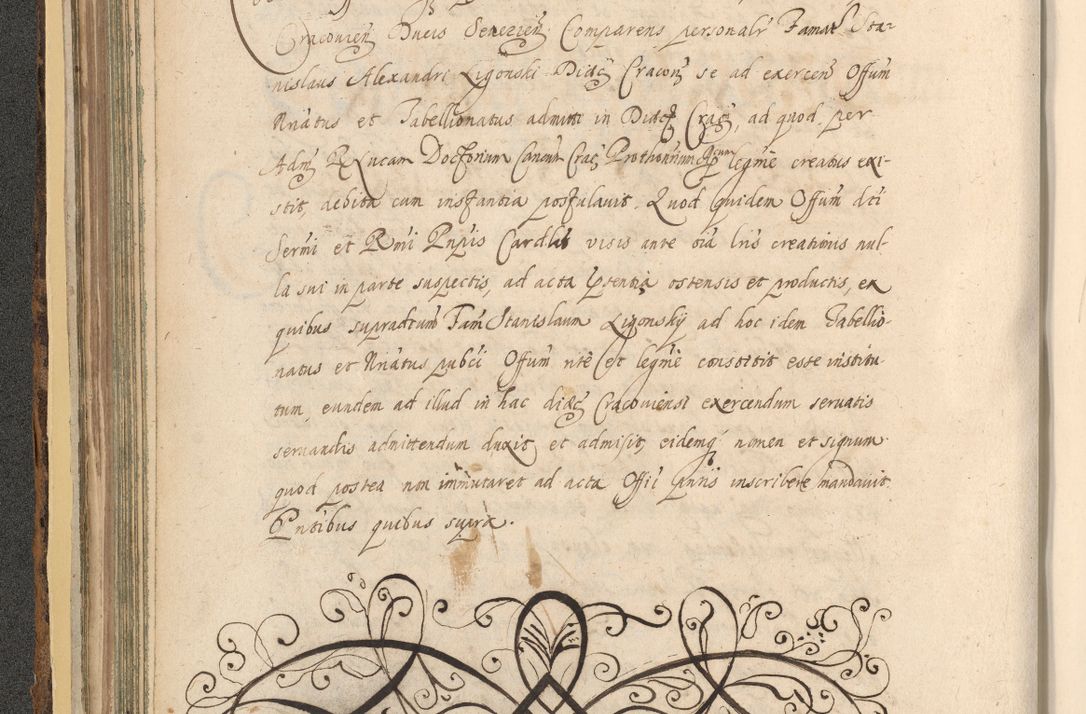 Cracovien Ducis Severien Comparens personalr Famat Sta-
nislaus Alexandri Ligonski Diæc Cracon se ad exercen Offum
Nriatus et Tabellionatus admitti in Diæc Crac, ad quod per
Adm R Lucam Doctorium Canem Crac Prothonrium legme creatus exi-
stit, debita cum instantia postulavit. Quod quidem Offum dti
Sermi et Rmi Pnpis Cardlis visis ante oia lris creationis nul-
la sui in parte suspectis, ad acta ostensis et productis, ex
quibus supradtum Fam Stanislaum Ligonskij ad hoc idem Tabellio-
natus et Nriatus pubci Offum rite et legme constitit esse institu
tum, eundem ad illud in hac diæc Cracoviensi exercendum servatis
servandis admittendum duxit et admisit, eidemq nomen et signum
quod postea non immutaret ad acta Offii pntis inscribere mandavit.
Pntibus quibus supra.